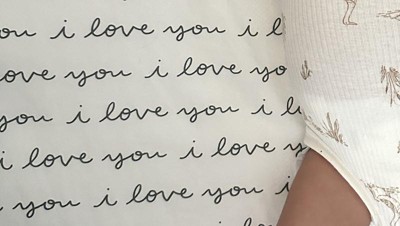 ou i love you i l
ove you i love yo
you i love you i l
i love you i love y
you i love you i
i lo